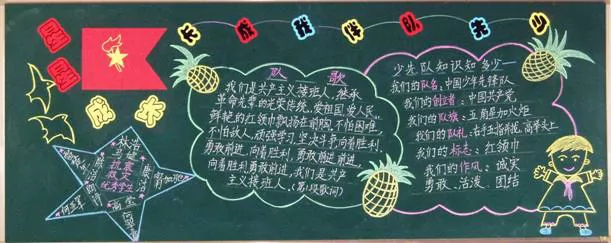 少先队伴我成长
队 歌
我们是共产主义接班人，继承
革命先辈的光荣传统，爱祖国，爱人民，
鲜艳的红领巾飘扬在前胸，不怕困难，
不怕敌人，顽强学习，坚决斗争，向着胜利，
勇敢前进，向着胜利，勇敢前进，前进，
向着胜利勇敢前进，我们是共产
主义接班人，
少先队知识知多少
我们的队名：中国少年先锋队
我们的创立者：中国共产党
我们的队旗：五角星加火炬
我们的队礼：右手五指并拢，高举头上
我们的标志：红领巾
我们的作风：诚实
勇敢、活泼、团结
林浩
抗震
救灾
优秀学生